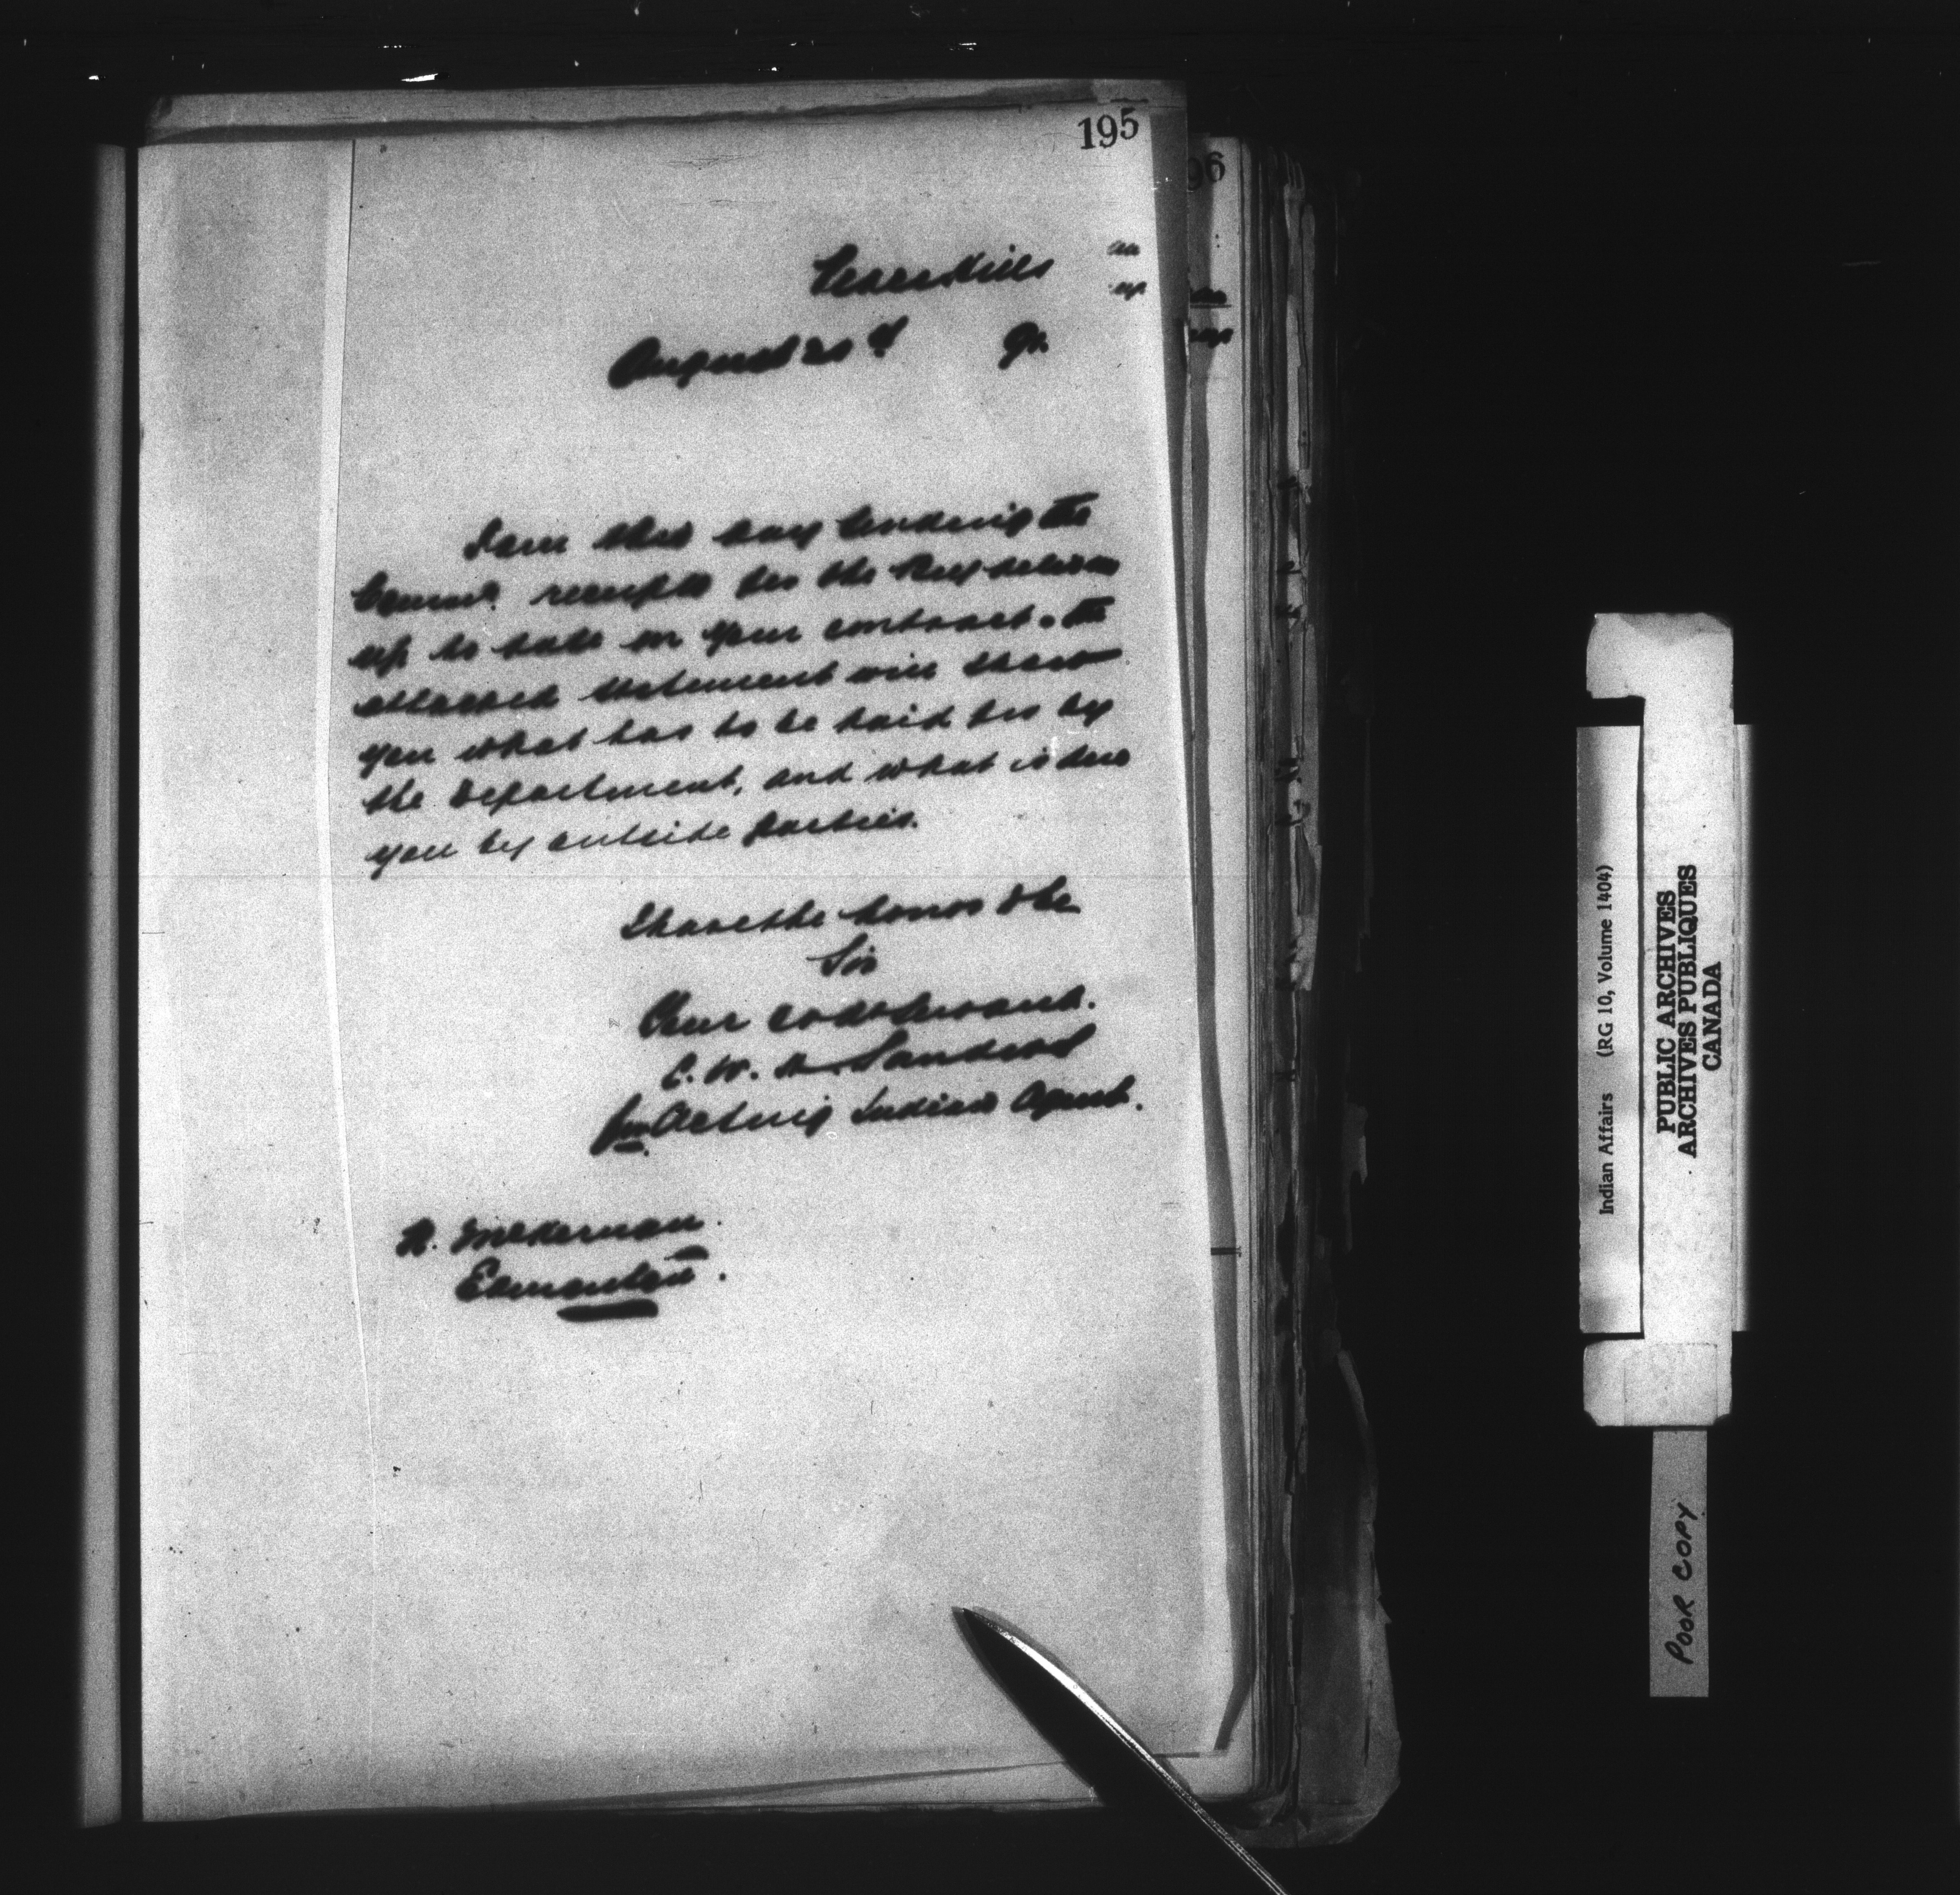 195
96
Peace Hills
August 20th 91.
I am this day sending the
Commr. receipts for the Beef delivered
up to date on your contract. The
attached statement will show
you what has to be paid for by
the Department, and what is due
you by outside parties.
I have the honor to be
Sir
Your obdt servant.
C. W. H. Sanders
for Acting Indian Agent.
R. McKernan.
Edmonton.
Indian Affairs (RG 10, Volume 1404)
PUBLIC ARCHIVES
ARCHIVES PUBLIQUES
CANADA
POOR COPY